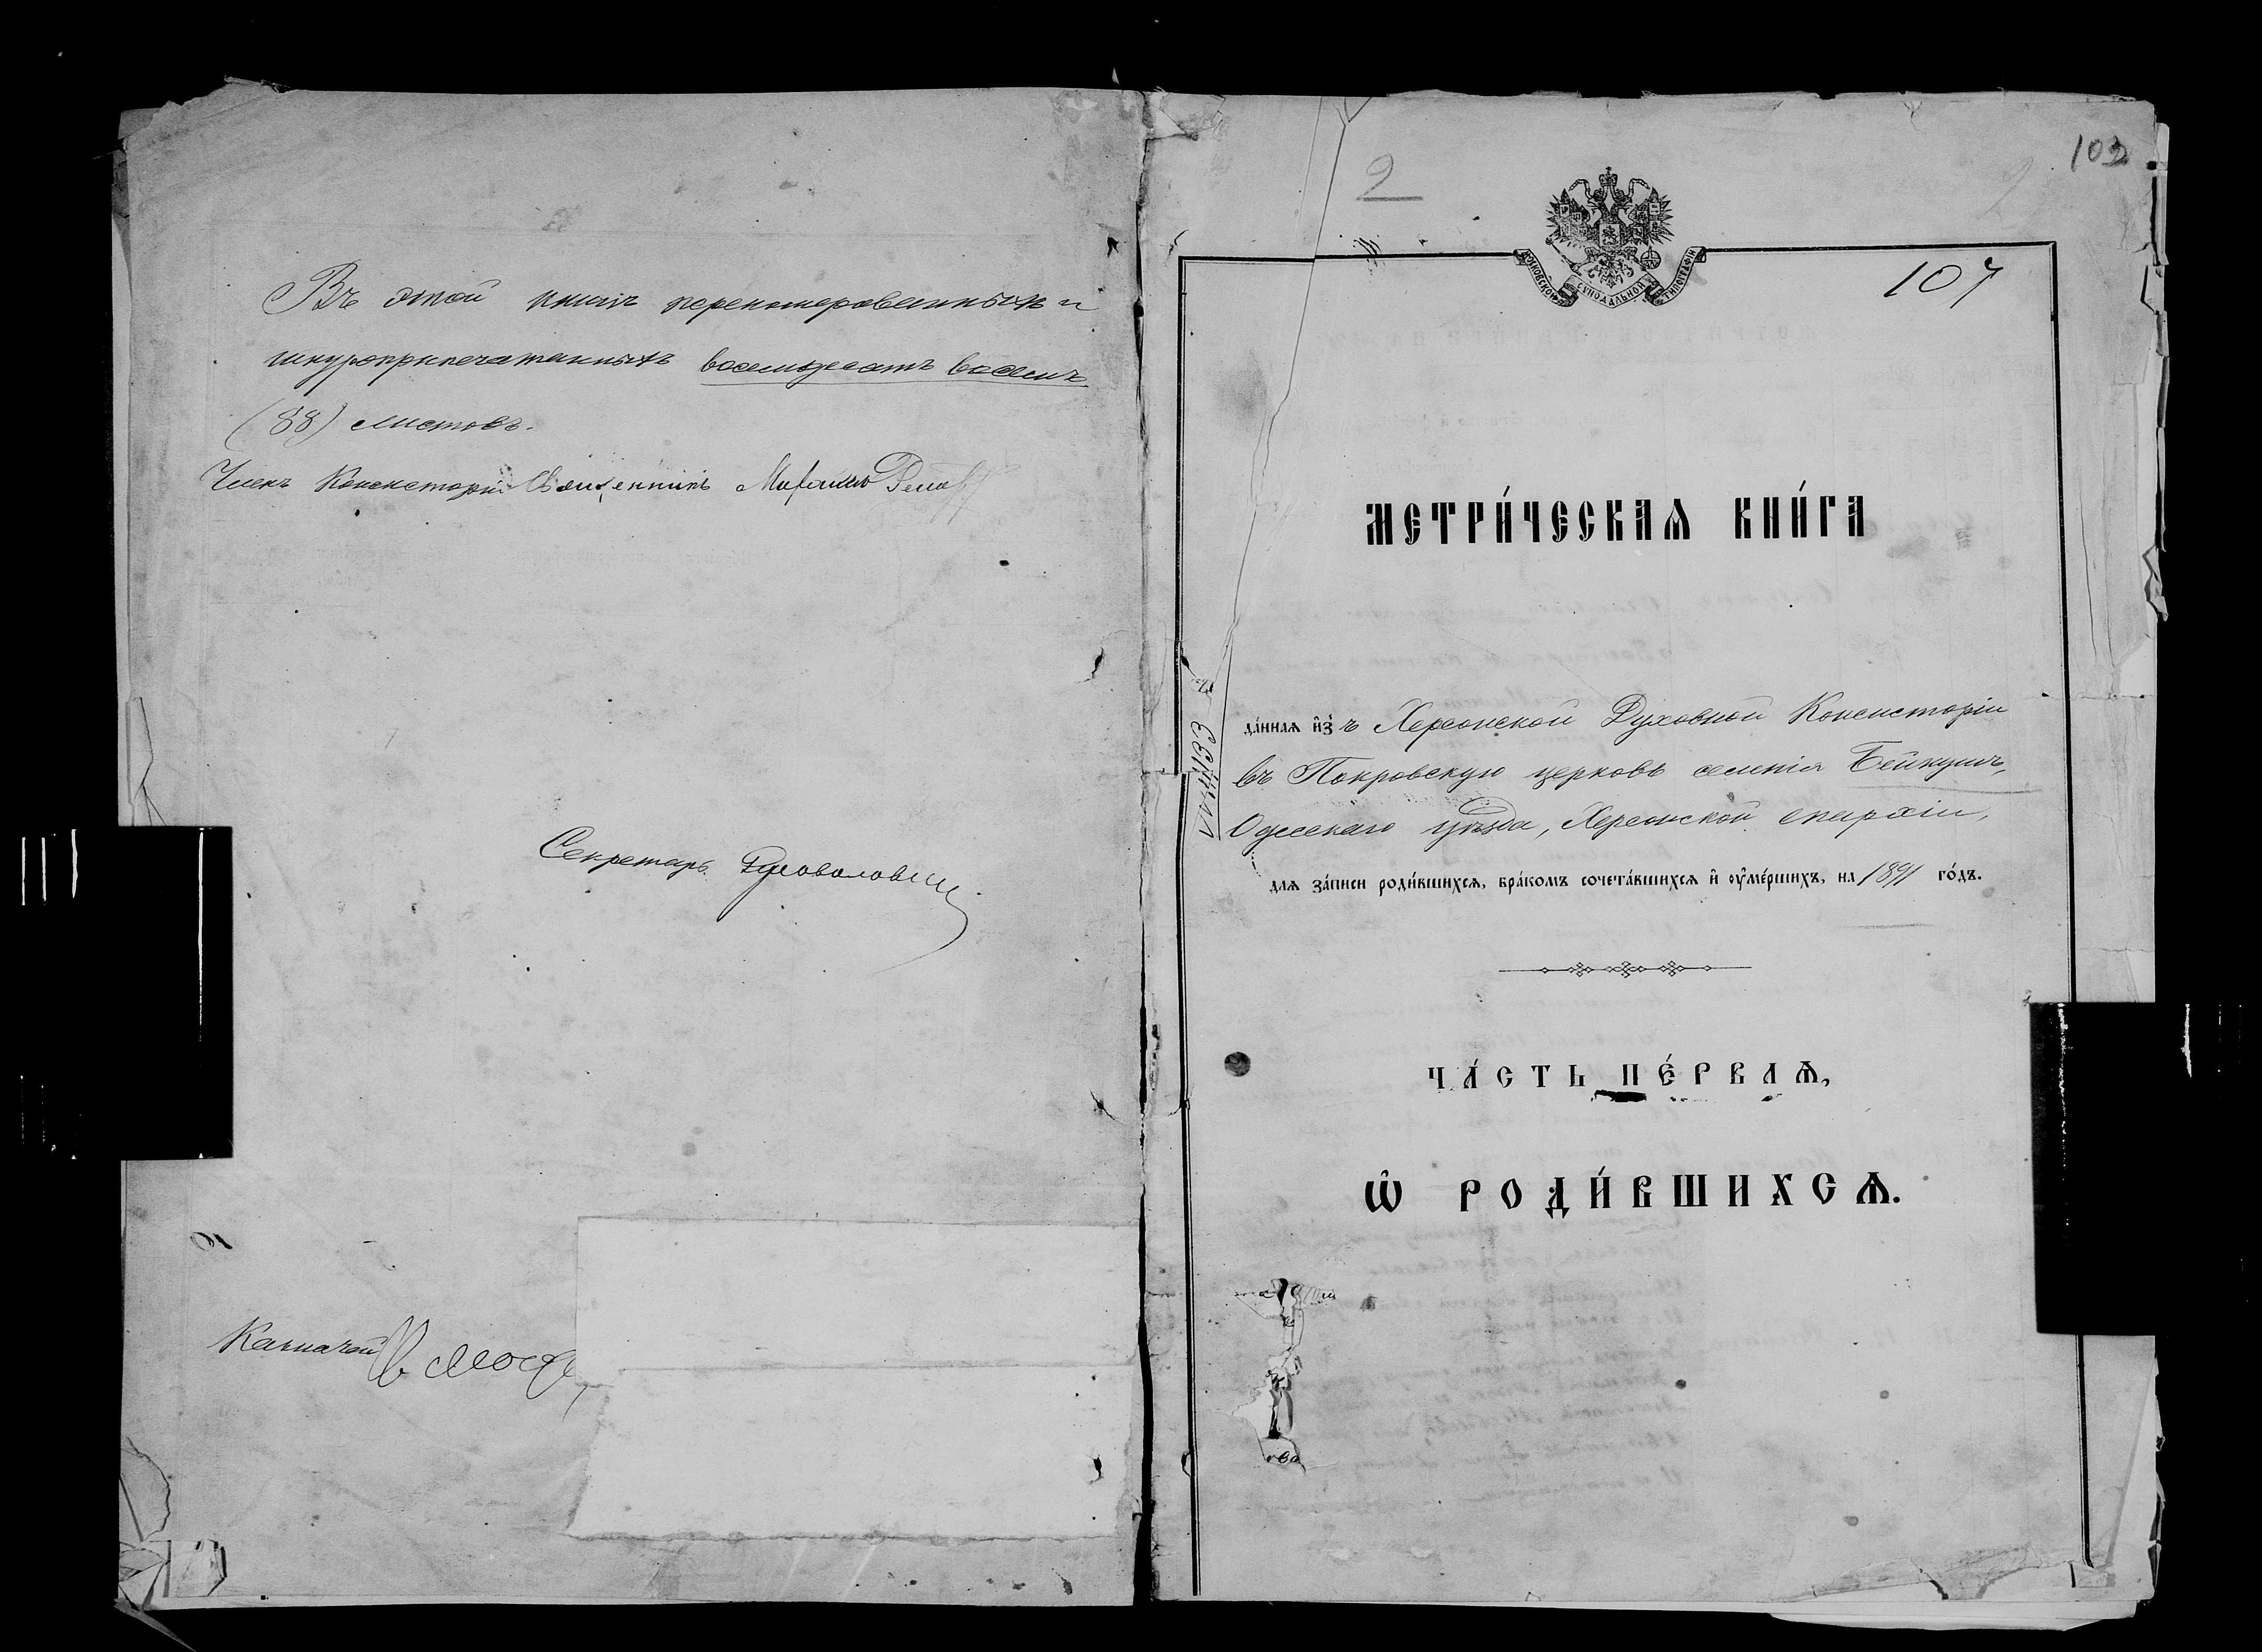 Въ этой книгѣ перенумерованныхъ и
шнуроприпечатанныхъ восемьдесятъ восемь
(88) листовъ.
Членъ Консисторіи Священникъ
Секретарь
Казначей
2
102
МОСКОВСКОЙ СѴНОДАЛЬНОЙ ТИПОГРАФІИ
107
МЕТРИ́ЧЕСКАѦ КНИ́ГА
да́ннаѧ и҆зъ Херсонской Духовной Консисторіи
въ Покровскую церковь селенія Бейкушъ,
Одесскаго уѣзда, Херсонской епархіи,
для за́писи роди́вшихсѧ, бра́комъ сочета́вшихсѧ и҆ оу҆ме́ршихъ, на 1891 го́дъ.
ЧА́СТЬ ПЕ́РВАѦ,
Ѡ҆ РОДИ́ВШИХСѦ.